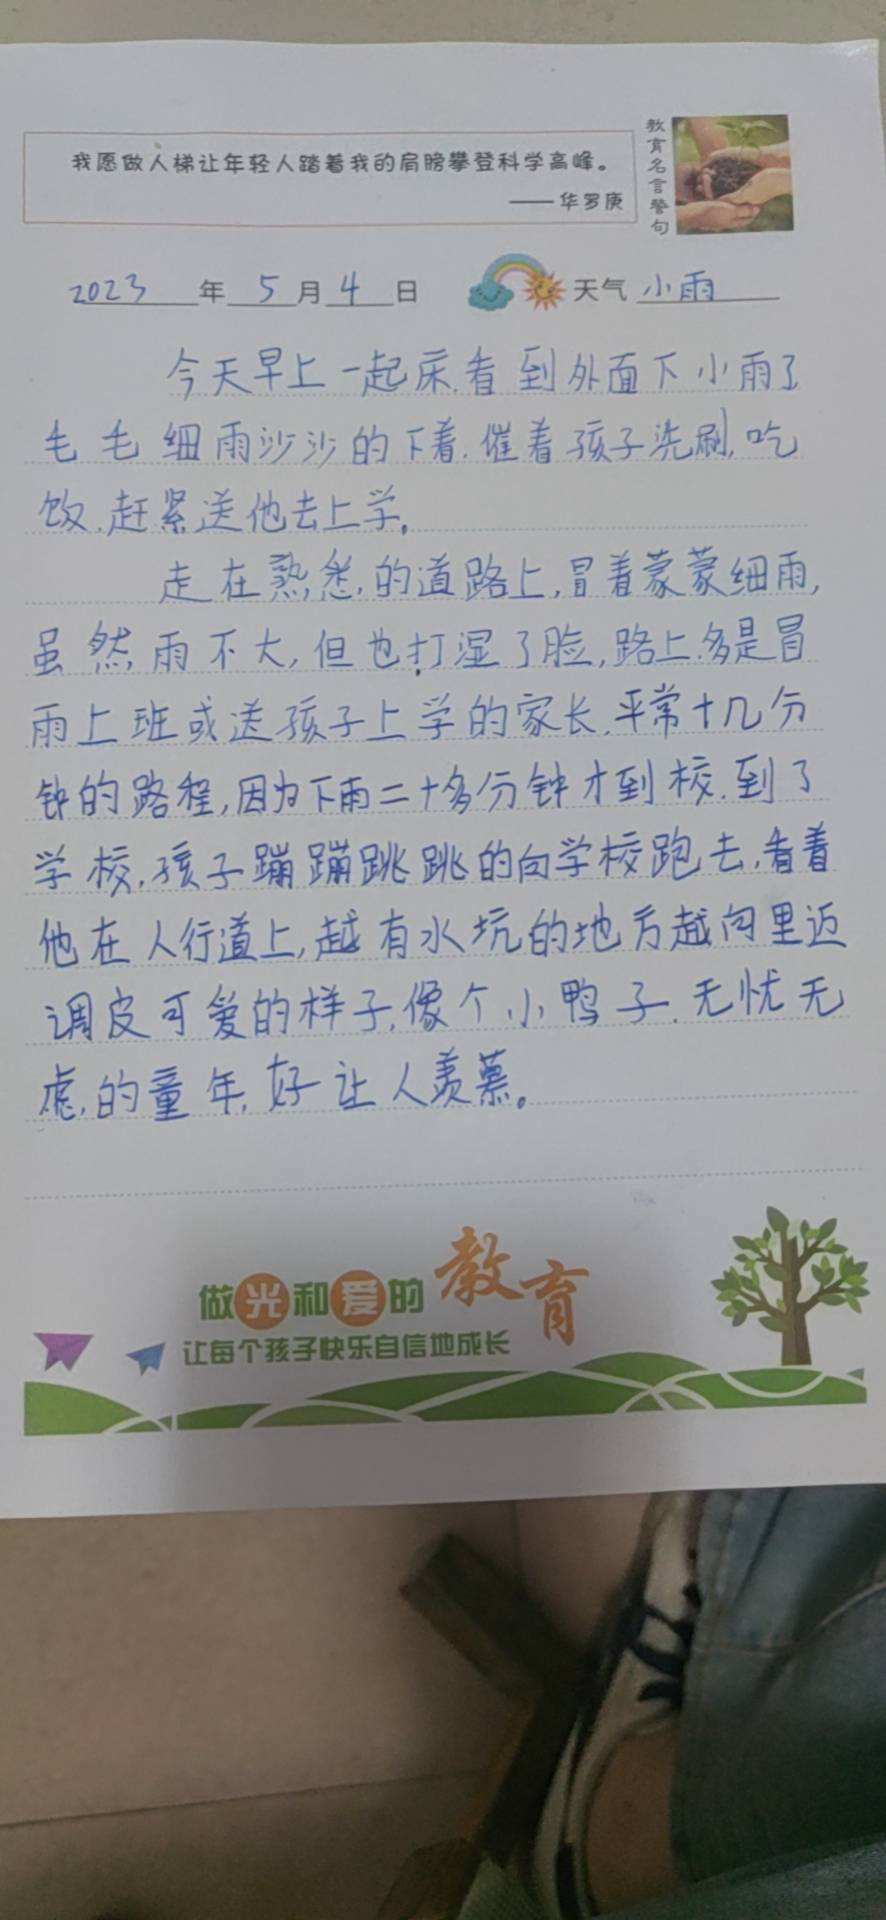 我愿做人梯让年轻人踏着我的肩膀攀登科学高峰。
——华罗庚
教育名言警句
2023年5月4日 天气 小雨
今天早上一起床,看到外面下小雨了
毛毛细雨沙沙的下着,催着孩子洗刷,吃
饭,赶紧送他去上学。
走在熟悉,的道路上,冒着蒙蒙细雨,
虽然雨不大,但也打湿了脸,路上多是冒
雨上班或送孩子上学的家长,平常十几分
钟的路程,因为下雨二十多分钟才到校.到了
学校,孩子蹦蹦跳跳的向学校跑去,看着
他在人行道上,越有水坑的地方越向里迈
调皮可爱的样子,像个小鸭子.无忧无
虑,的童年,好让人羡慕。
做光和爱的教育
让每个孩子快乐自信地成长